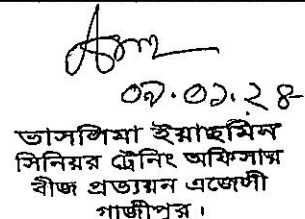 ০৯.০১.২৪
তাসলিমা ইয়াছমিন
সিনিয়র ট্রেনিং অফিসার
বীজ প্রত্যয়ন এজেন্সী
গাজীপুর।